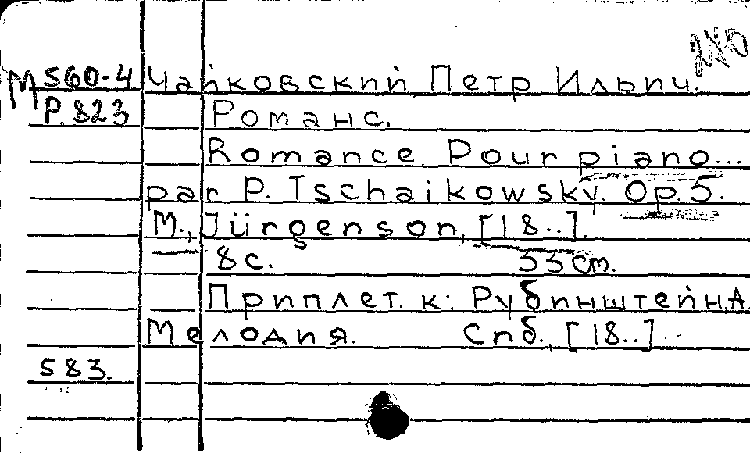 М 560-4 Чайковский Петр Ильич.
Р. 823 Романс.
Romance Pour piano...
par P. Tschaikowsky. Op. 5.
М., Jürgenson, [18..].
8 с. 33 cm.
Приплет. к: Рубинштейн А
Мелодия. Спб., [18..]
583.